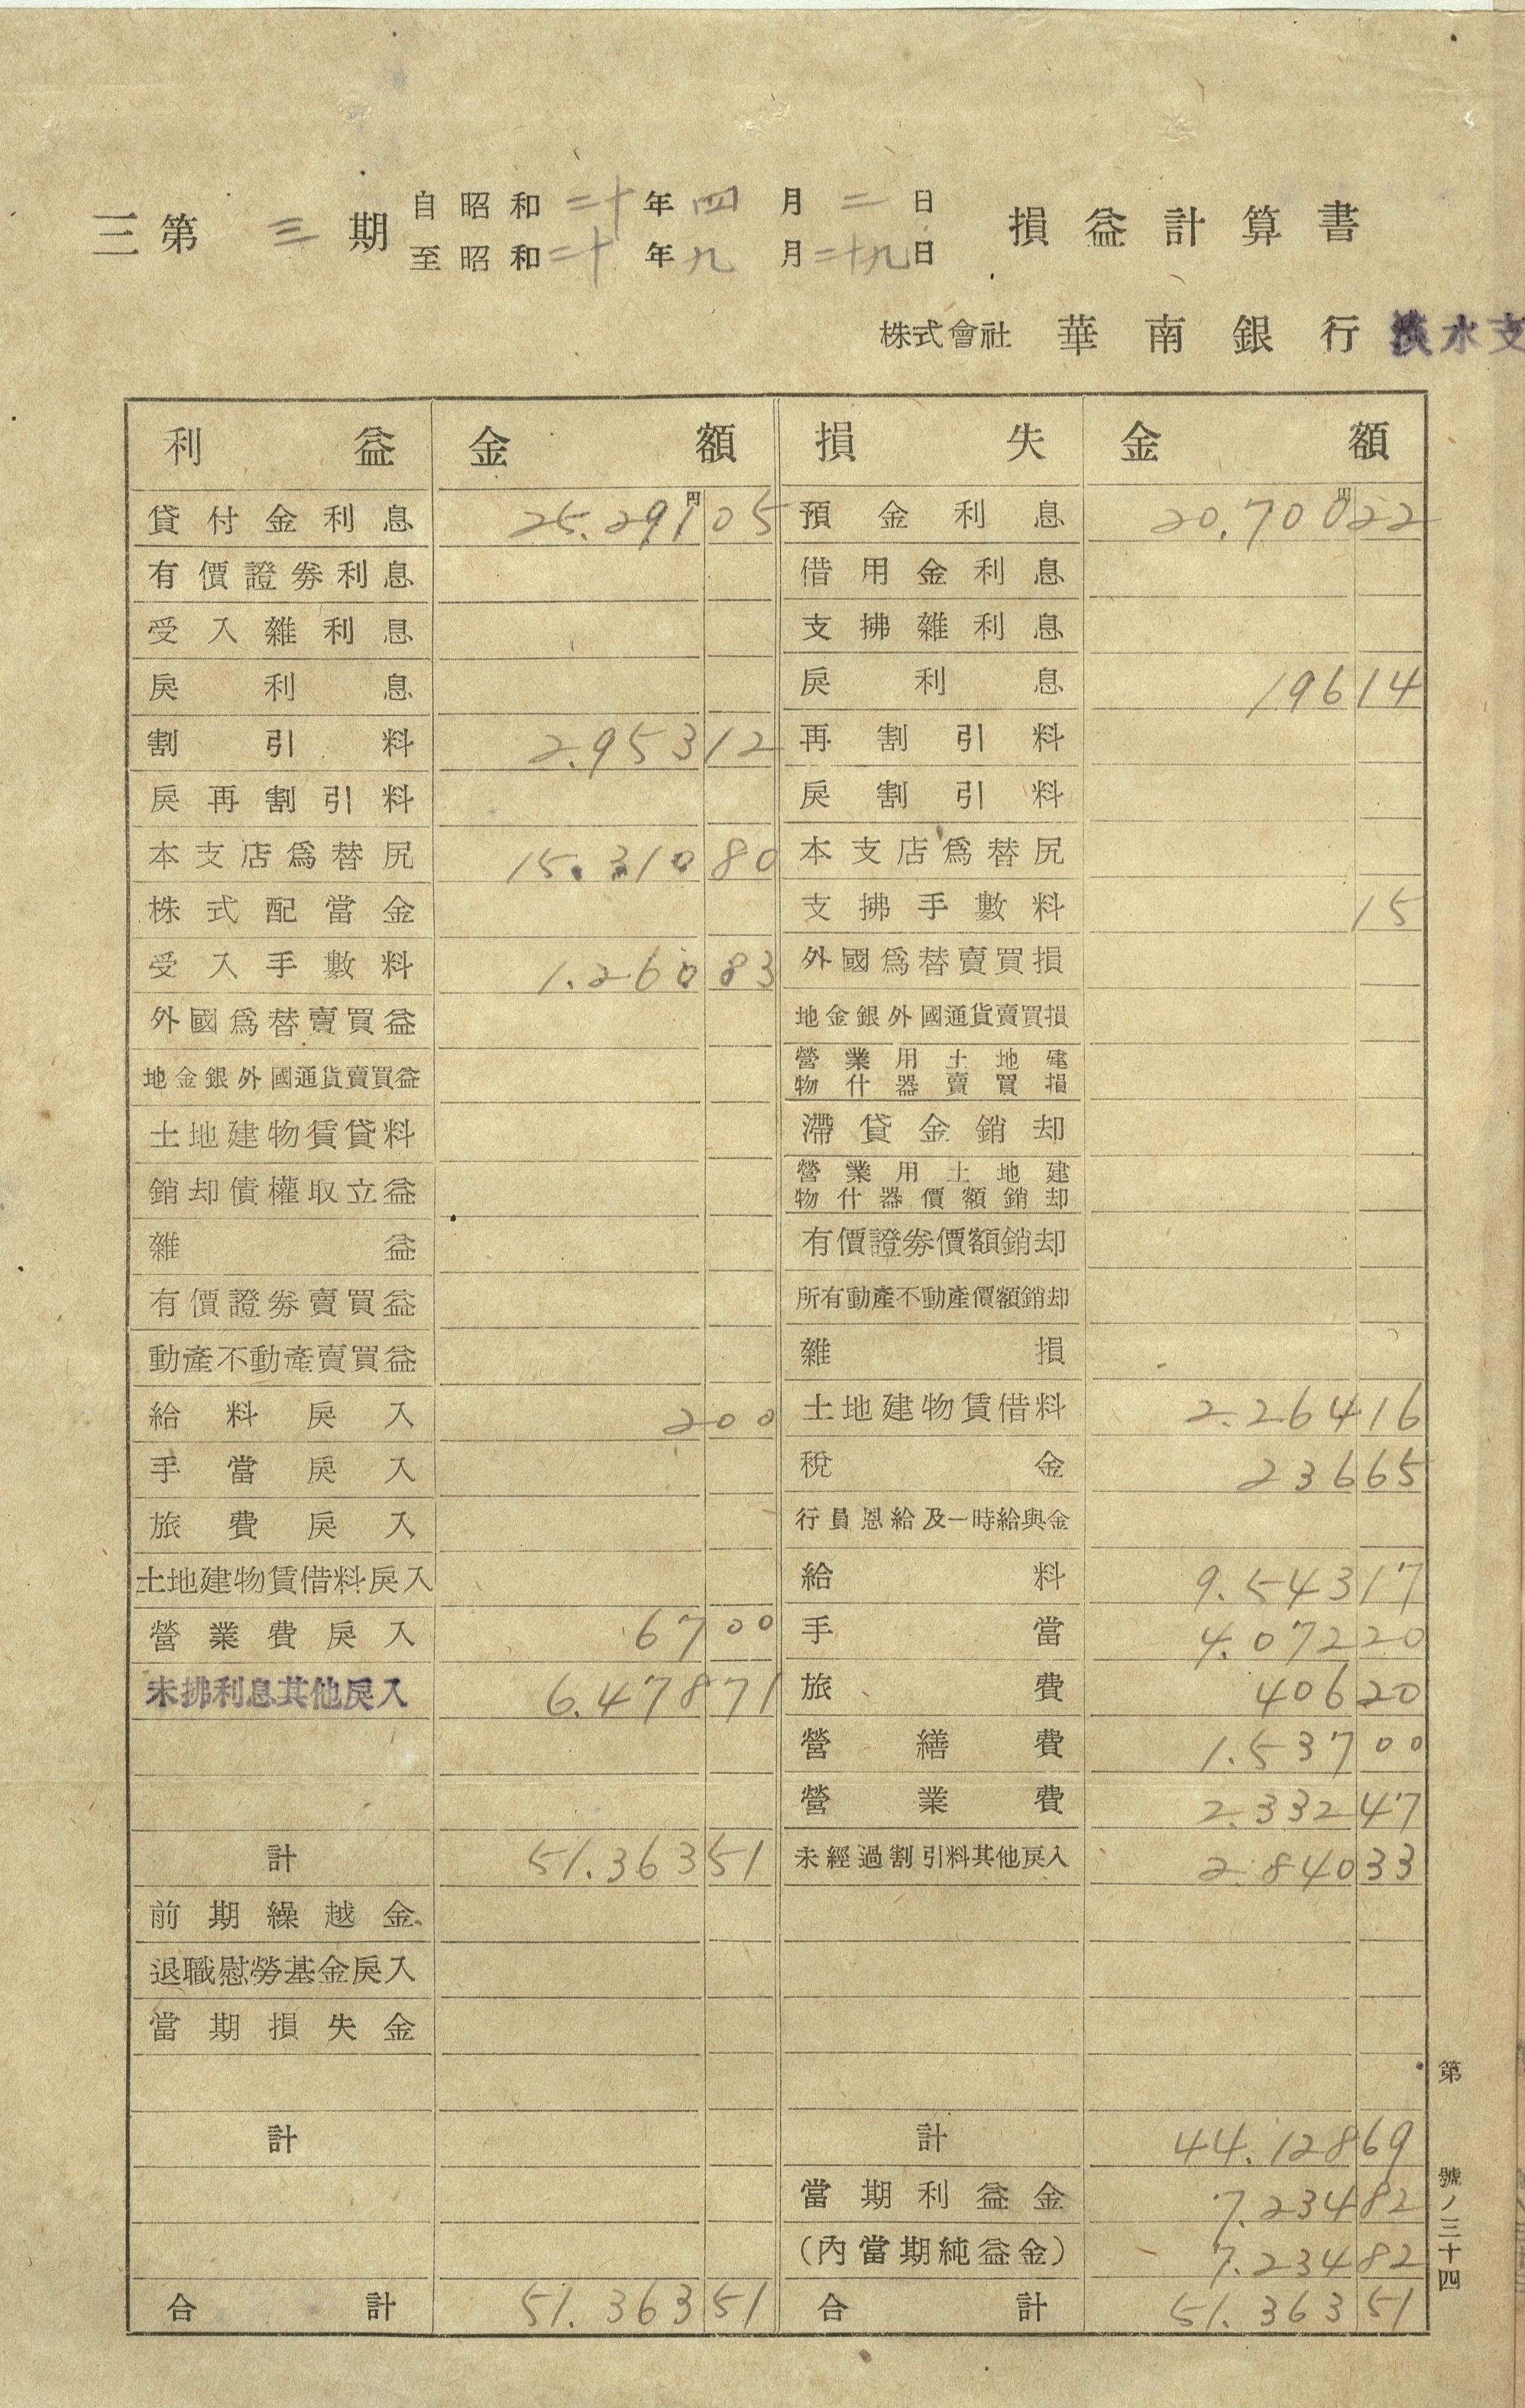 三第三期 自昭和二十年四月二日 損益計算書
至昭和二十年九月二十九日
株式會社 華南銀行 淡水支
利益 金額 損失 金額
貸付金利息 25.291円05 預金利息 20.700円22
有價證券利息 借用金利息
受入雜利息 支拂雜利息
戾利息 戾利息 19614
割引料 2.95312 再割引料
戾再割引料 戾割引料
本支店爲替尻 15.31080 本支店爲替尻
株式配當金 支拂手數料 15
受入手數料 1.26083 外國爲替賣買損
外國爲替賣買益 地金銀外國通貨賣買損
地金銀外國通貨賣買益 營業用土地建物什器賣買損
土地建物賃貸料 滯貸金銷却
銷却債權取立益 營業用土地建物什器價額銷却
雜益 有價證券價額銷却
有價證券賣買益 所有動產不動產價額銷却
動產不動產賣買益 雜損
給料戾入 200 土地建物賃借料 2.26416
手當戾入 稅金 23665
旅費戾入 行員恩給及一時給與金
土地建物賃借料戾入 給料 9.54317
營業費戾入 6700 手當 4.07220
未拂利息其他戾入 6.47871 旅費 40620
營繕費 1.53700
營業費 2.33247
計 51.36351 未經過割引料其他戾入 2.84033
前期繰越金
退職慰勞基金戾入
當期損失金
計 計 44.12869
當期利益金 7.23482
(內當期純益金) 7.23482
合計 51.36351 合計 51.36351
第 號ノ三十四